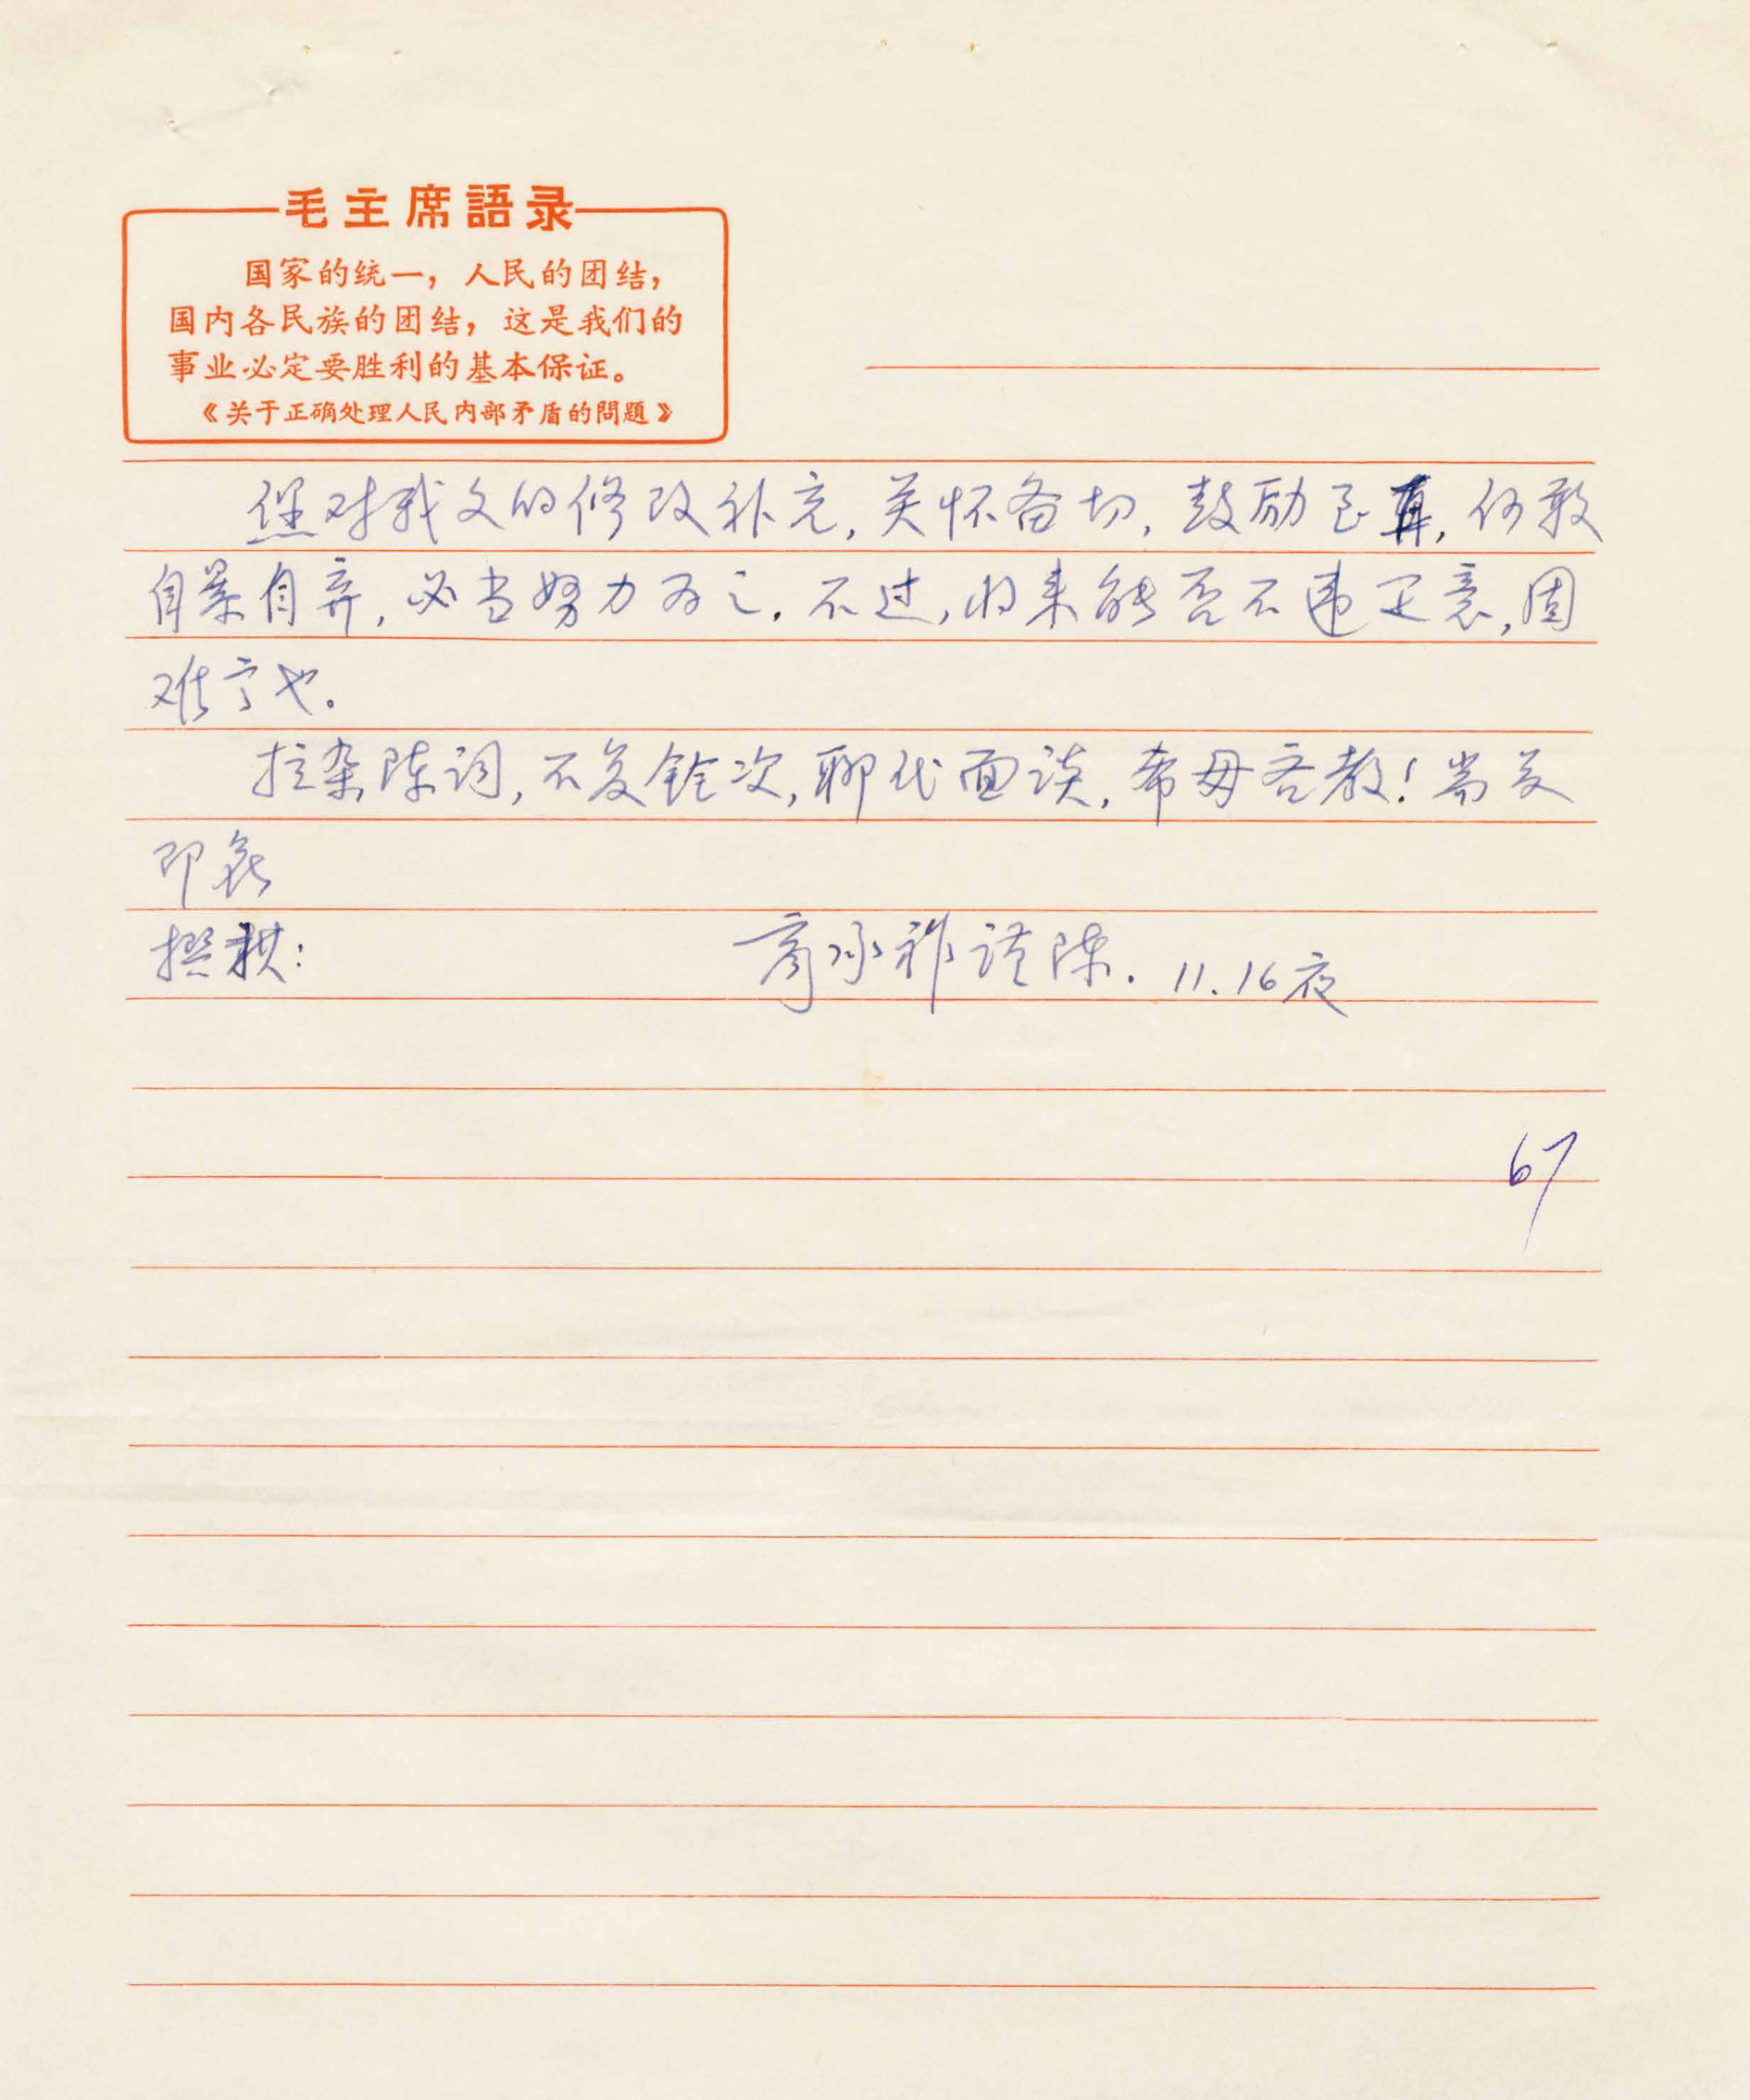 毛主席語录
国家的统一，人民的团结，
国内各民族的团结，这是我们的
事业必定要胜利的基本保证。
《关于正确处理人民内部矛盾的問題》
您对我文的修改补充，关怀备切，鼓励至再，何敢
自暴自弃，必当努力为之。不过，将来能否不违正意，固
难言也。
拉杂陈词，不复铨次，聊代面谈，希毋吝教！耑复
即颂
撰祺：
商承祚谨陈．11.16夜
67